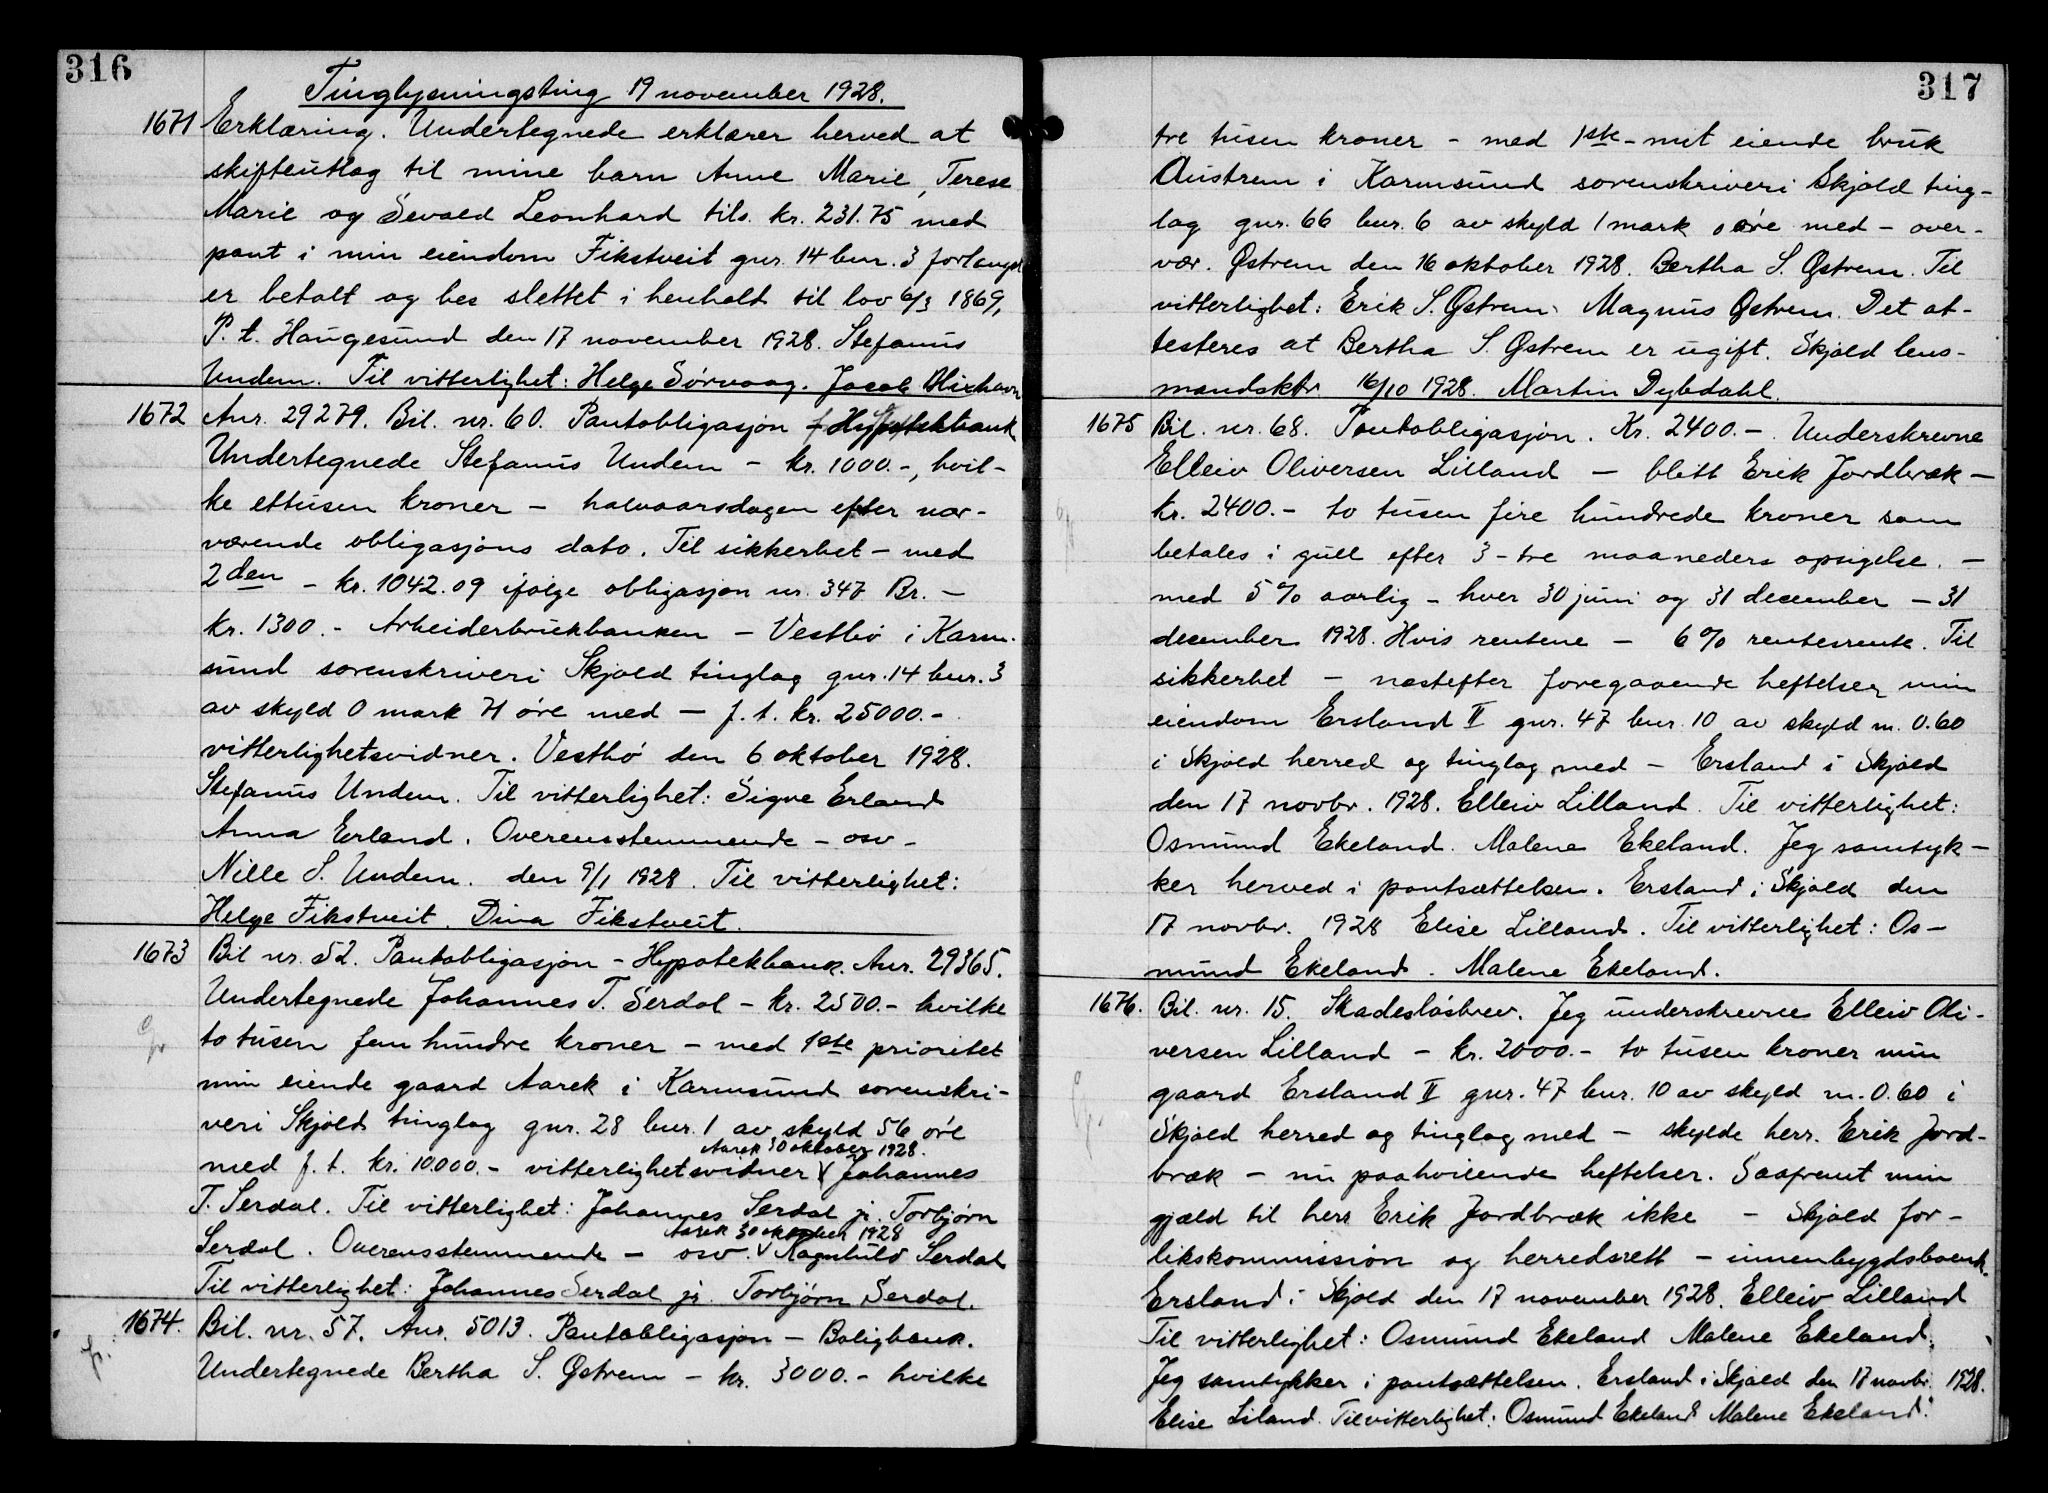 316
Tinglysningsting 19 november 1928.
1671 Erklæring. Undertegnede erklærer herved at
skifteutlag til mine barn Anne Marie, Terese
Marie og Sevald Leonhard tils. kr. 231.75 med
pant i min eiendom Fikstveit gnr. 14 bnr. 3 forlængst
er betalt og bes slettet i henhold til lov 6/3 1869,
P. t. Haugesund den 17 november 1928. Stefanus
Undem. Til vitterlighet: Helge Sørvaag. Jacob Blixhavn
1672 Anr. 29279. Bil. nr. 60. Pantobligasjon f Hypotekbank
Undertegnede Stefanus Undem - kr. 1000.-, hvil-
ke ettusen kroner - halvaarsdagen efter nær-
værende obligasjons dato. Til sikkerhet - med
2den - kr. 1042.09 ifølge obligasjon nr. 347 Br. -
kr. 1300.- Arbeiderbrukbanken - Vestbø i Karm-
sund sorenskriveri Skjold tinglag gnr. 14 bnr. 3
av skyld 0 mark 71 øre med - f. t. kr. 25000.-
vitterlighetsvidner. Vestbø den 6 oktober 1928.
Stefanus Undem. Til vitterlighet: Signe Erland
Anna Erland. Overensstemmende - osv -
Nille S. Undem. den 9/1 1928. Til vitterlighet:
Helge Fikstveit. Dina Fikstveit.
1673 Bil nr. 52. Pantobligasjon - Hypotekbank. Anr. 29365.
Undertegnede Johannes T. Serdal - kr. 2500.- hvilke
to tusen fem hundre kroner - med 1ste prioritet
min eiende gaard Aarek i Karmsund sorenskri-
veri Skjold tinglag gnr. 28 bnr. 1 av skyld 56 øre
Aarek 30 oktober 1928.
med f. t. kr. 10000.- vitterlighetsvidner V Johannes
T. Serdal. Til vitterlighet: Johannes Serdal jr. Torbjørn
Aarek 30 oktober 1928
Serdal. Overensstemmende - osv. V Ragnhild Serdal
Til vitterlighet: Johannes Serdal jr. Torbjørn Serdal.
1674. Bil. nr. 57. Anr. 5013. Pantobligasjon - Boligbank.
Undertegnede Bertha S. Østrem - kr. 3000.- hvilke
317
tre tusen kroner - med 1ste - mit eiende bruk
Austrem i Karmsund sorenskriveri Skjold ting-
lag gnr. 66 bnr. 6 av skyld 1 mark 0 øre med - over-
vær. Østrem den 16 oktober 1928. Bertha S. Østrem. Til
vitterlighet: Erik S. Østrem. Magnus Østrem. Det at-
testeres at Bertha S. Østrem er ugift. Skjold lens-
mandsktr. 16/10 1928. Martin Dybdahl.
1675 Bil. nr. 68. Pantobligasjon. Kr. 2400.-. Underskrevne
Elleiv Oliversen Lilland - blitt Erik Jordbræk -
kr. 2400.- to tusen fire hundrede kroner som
betales i gull efter 3 - tre maaneders opsigelse. -
med 5% aarlig - hver 30 juni og 31 december - 31
december 1928. Hvis rentene - 6% rentesrente. Til
sikkerhet - næstefter foregaaende heftelser min
eiendom Ersland II gnr. 47 bnr. 10 av skyld m. 0.60
i Skjold herred og tinglag med - Ersland i Skjold
den 17 novbr. 1928. Elleiv Lilland. Til vitterlighet:
Osmund Ekeland. Malene Ekeland. Jeg samtyk-
ker herved i pantsættelsen. Ersland i Skjold den
17 novbr. 1928 Elise Lilland. Til vitterlighet: Os-
mund Ekeland. Malene Ekeland.
1676. Bil. nr. 15. Skadesløsbrev. Jeg underskrevne Elleiv Oli-
versen Lilland - kr. 2000.- to tusen kroner min
gaard Ersland II gnr. 47 bnr. 10 av skyld m. 0.60 i
Skjold herred og tinglag med - skylde herr. Erik Jord-
bræk - nu paahvilende heftelser. Saafremt min
gjæld til herr Erik Jordbræk ikke - Skjold for-
likskommission og herredsrett - innenbygdsboende.
Ersland i Skjold den 17 november 1928. Elleiv Lilland
Til vitterlighet: Osmund Ekeland Malene Ekeland.
Jeg samtykker i pantsættelsen. Ersland i Skjold den 17 novbr. 1928.
Elise Liland. Til vitterlighet: Osmund Ekeland Malene Ekeland.